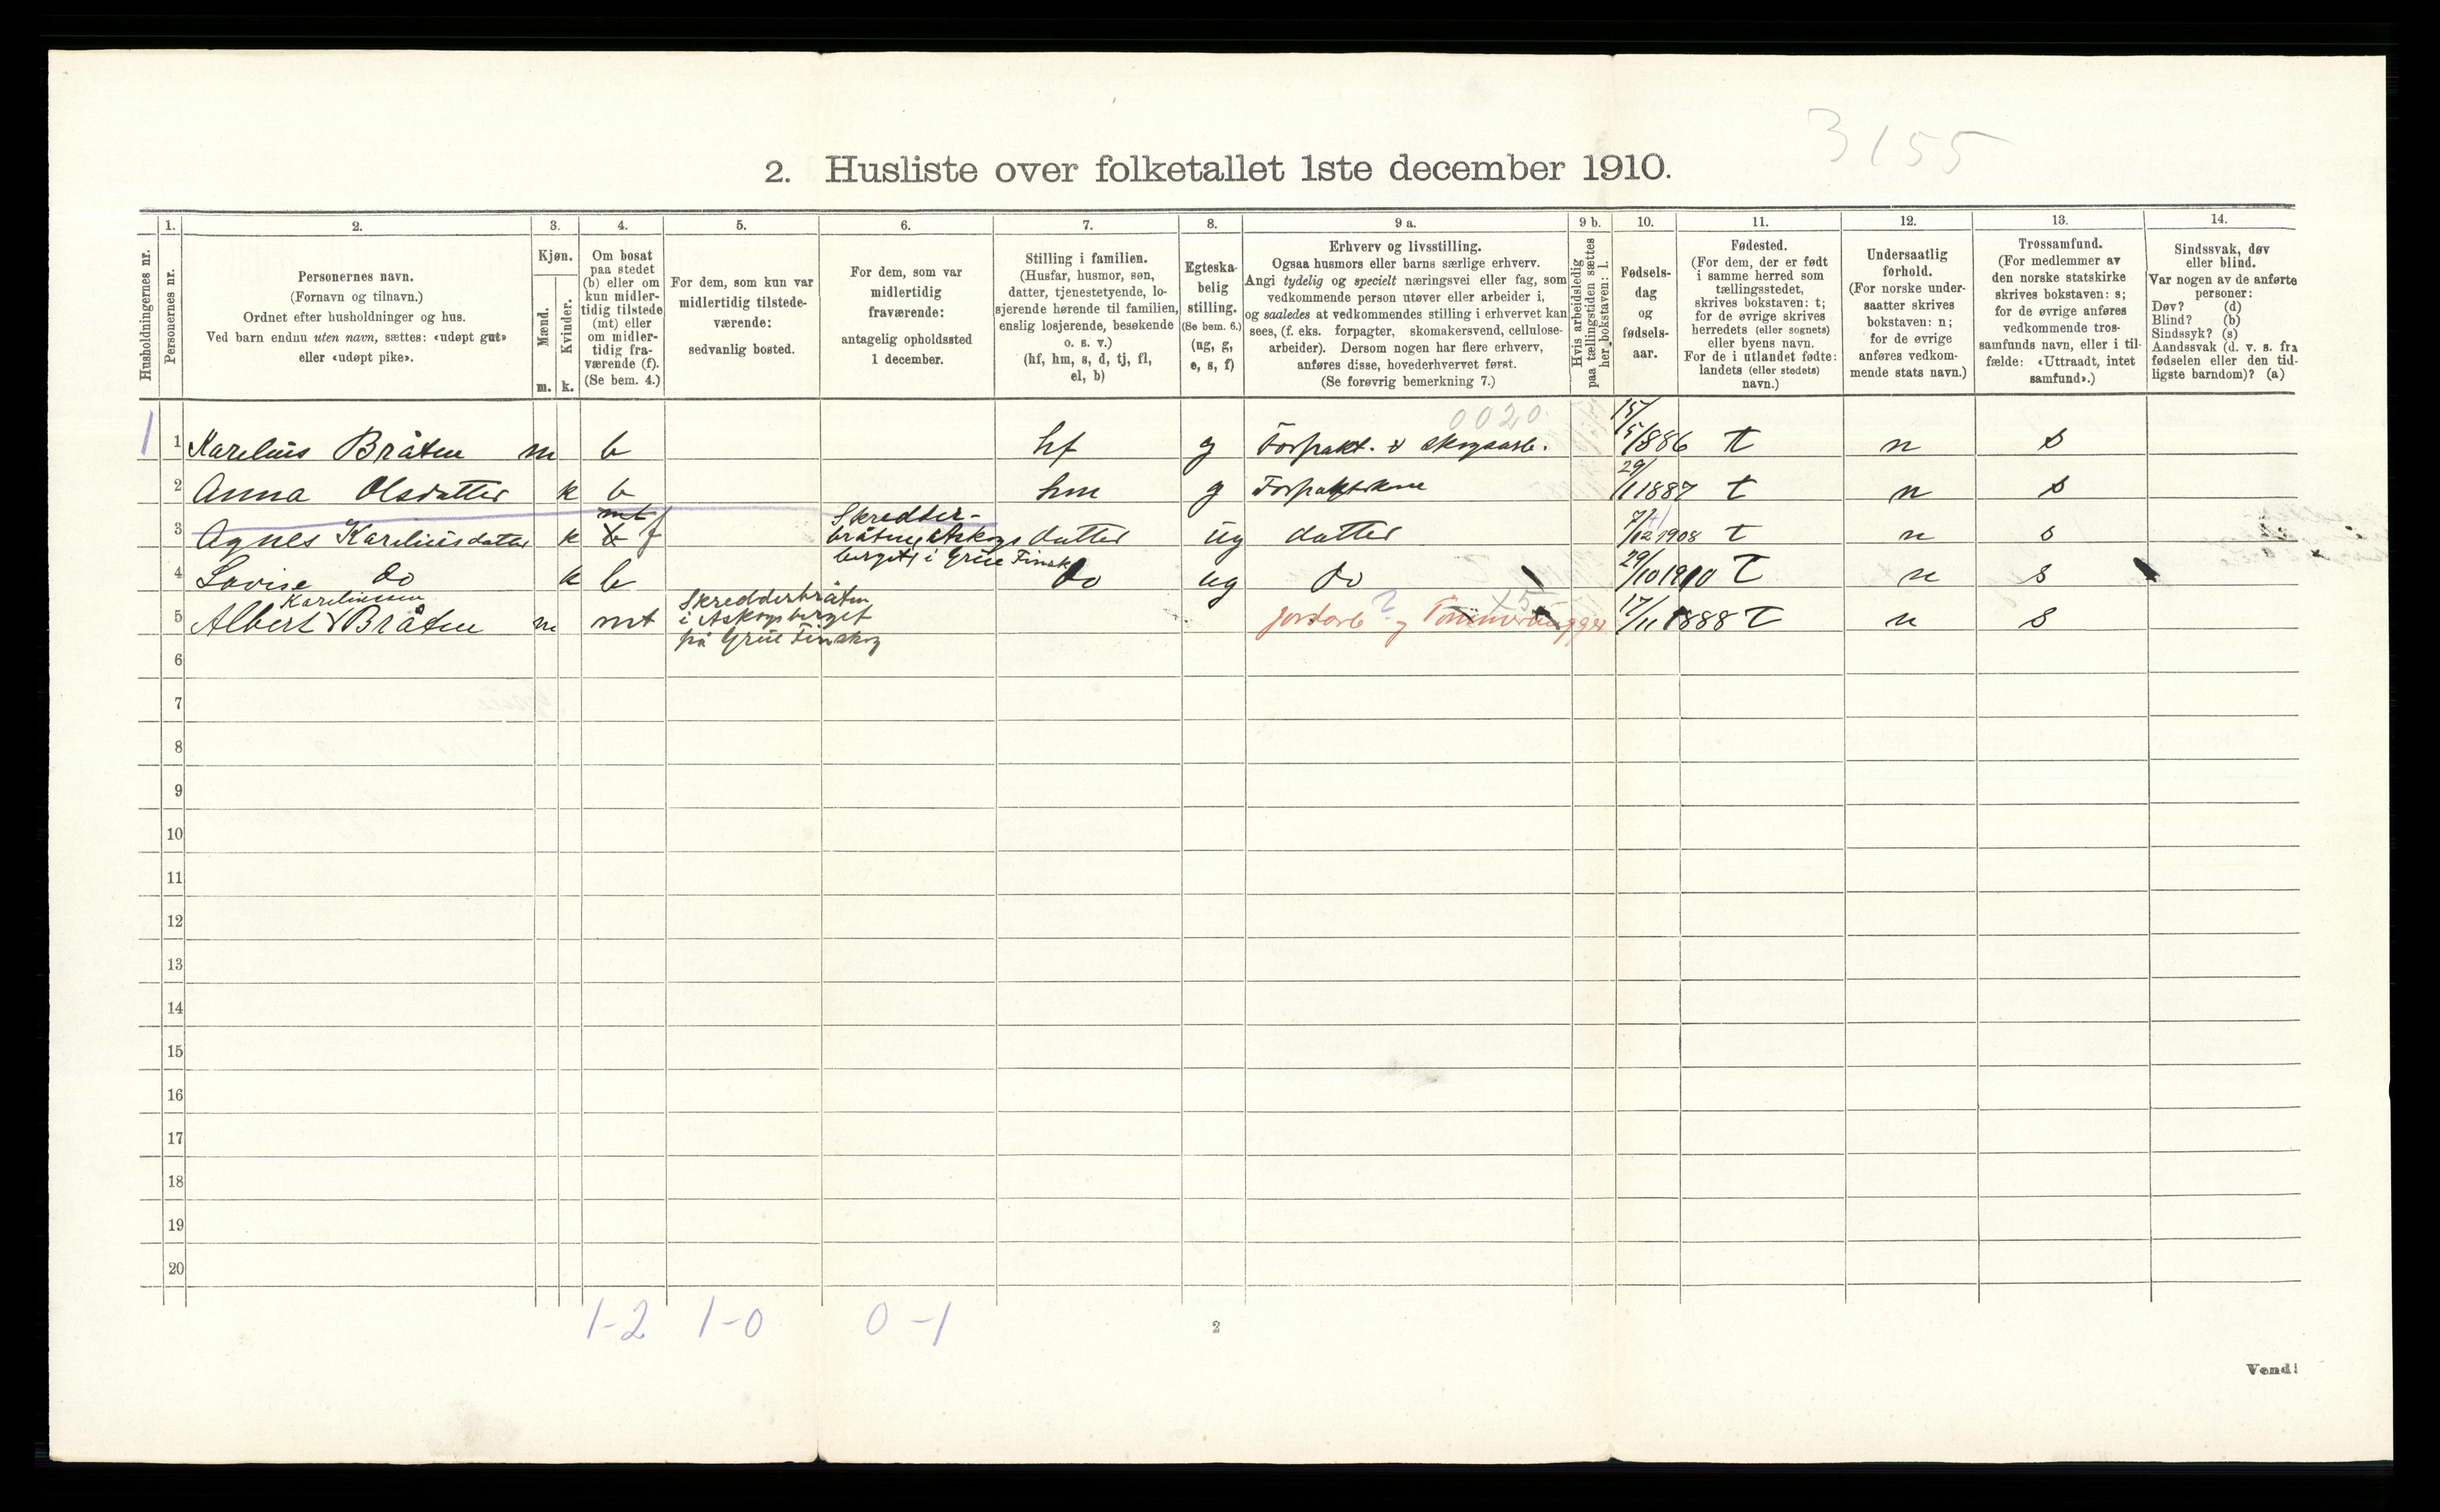 3155
2. Husliste over folketallet 1ste december 1910.
Husholdningernes nr.
1.
Personernes nr.
2.
Personernes navn.
(Fornavn og tilnavn.)
Ordnet efter husholdninger og hus.
Ved barn endnu uten navn, sættes: «udøpt gut»
eller «udøpt pike».
3.
Kjøn.
Mænd.
Kvinder.
m. k.
4.
Om bosat
paa stedet
(b) eller om
kun midler-
tidig tilstede
(mt) eller
om midler-
tidig fra-
værende (f).
(Se bem. 4.)
5.
For dem, som kun var
midlertidig tilstede-
værende:
sedvanlig bosted.
6.
For dem, som var
midlertidig
fraværende:
antagelig opholdssted
1 december.
7.
Stilling i familien.
(Husfar, husmor, søn,
datter, tjenestetyende, lo-
sjerende hørende til familien,
enslig losjerende, besøkende
o. s. v.)
(hf, hm, s, d, tj, fl,
el, b)
8.
Egteska-
belig
stilling.
(Se bem. 6.)
(ug, g,
e, s, f)
9 a.
Erhverv og livsstilling.
Ogsaa husmors eller barns særlige erhverv.
Angi tydelig og specielt næringsvei eller fag, som
vedkommende person utøver eller arbeider i,
og saaledes at vedkommendes stilling i erhvervet kan
sees, (f. eks. forpagter, skomakersvend, cellulose-
arbeider). Dersom nogen har flere erhverv,
anføres disse, hovederhvervet først.
(Se forøvrig bemerkning 7.)
9 b.
Hvis arbeidsledig
paa tællingstiden sættes
her bokstaven: l.
10.
Fødsels-
dag
og
fødsels-
aar.
11.
Fødested.
(For dem, der er født
i samme herred som
tællingsstedet,
skrives bokstaven: t;
for de øvrige skrives
herredets (eller sognets)
eller byens navn.
For de i utlandet fødte:
landets (eller stedets)
navn.)
12.
Undersaatlig
forhold.
(For norske under-
saatter skrives
bokstaven: n;
for de øvrige
anføres vedkom-
mende stats navn.)
13.
Trossamfund.
(For medlemmer av
den norske statskirke
skrives bokstaven: s;
for de øvrige anføres
vedkommende tros-
samfunds navn, eller i til-
fælde: «Uttraadt, intet
samfund».)
14.
Sindssvak, døv
eller blind.
Var nogen av de anførte
personer:
Døv? (d)
Blind? (b)
Sindssyk? (s)
Aandssvak (d. v. s. fra
fødselen eller den tid-
ligste barndom)? (a)
0020
1 1 Karelius Bråten m b hf g Forpakt. & skogsarb. 15/5 1886 t n s
2 Anna Olsdatter k b hm g 29/1 1887 t n s
3 Agnes Kareliusdatter k b mt f Skredder-
bråten, Askogs
berget i Grue Finsk datter ug datter 7/12 1908 t n s
4 Lovise do k b do ug do 29/10 1910 t n s
5 Albert Kareliussen Bråten m mt Skredderbråten
i Askogsberget
på Grue Finskog jordarb ? og Tømmerhugger x5 17/11 1888 t n s
6
7
8
9
10
11
12
13
14
15
16
17
18
19
20
1-2 1-0 0-1
2
Vend!